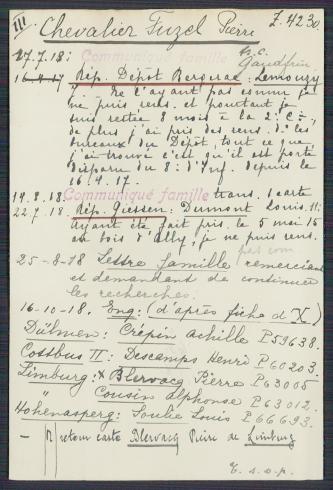 III
Chevalier Fuzel Pierre
Z.4230
17.7.18: Communiqué famille
16.4.17 Rép. Dépôt Bergerac: Lemouzy
J. Ne l'ayant pas connu je
ne puis rens. et pourtant je
suis resté 8 mois à la 2: Cie,
de plus j'ai pris des rens. ds les
bureaux du Dépôt, tout ce que
j'ai trouvé c'est qu'il est porté
disparu du 8: d'Inf. depuis le
16.4.17.
Communiqué famille trans. 1 carte
22.7.18. Rép. Giessen: Dumont Louis.11:
Ayant été fait pris. le 5 mai 15
au bois d'Ailly, je ne puis rens.
pas conn
25-8-18 Lettre famille remerciant
et demandant de continuer
les recherches.
16-10-18. Enq: (d'après fiche d'X)
Dülmen: Crépin Achille P59638.
Cottbus II: Descamps Henri P60203.
Limburg: Blervacq Pierre P63005
" Cousin Alphonse P63012.
Hohenasperg: Soulié Louis P66693.
retour carte Blervacq Pierre de Limburg